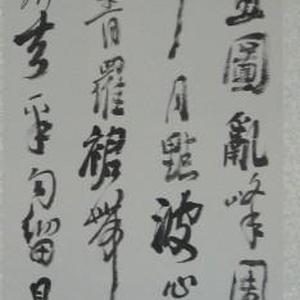 圖亂峰
月點波心
青羅裙帶
去半勾留是